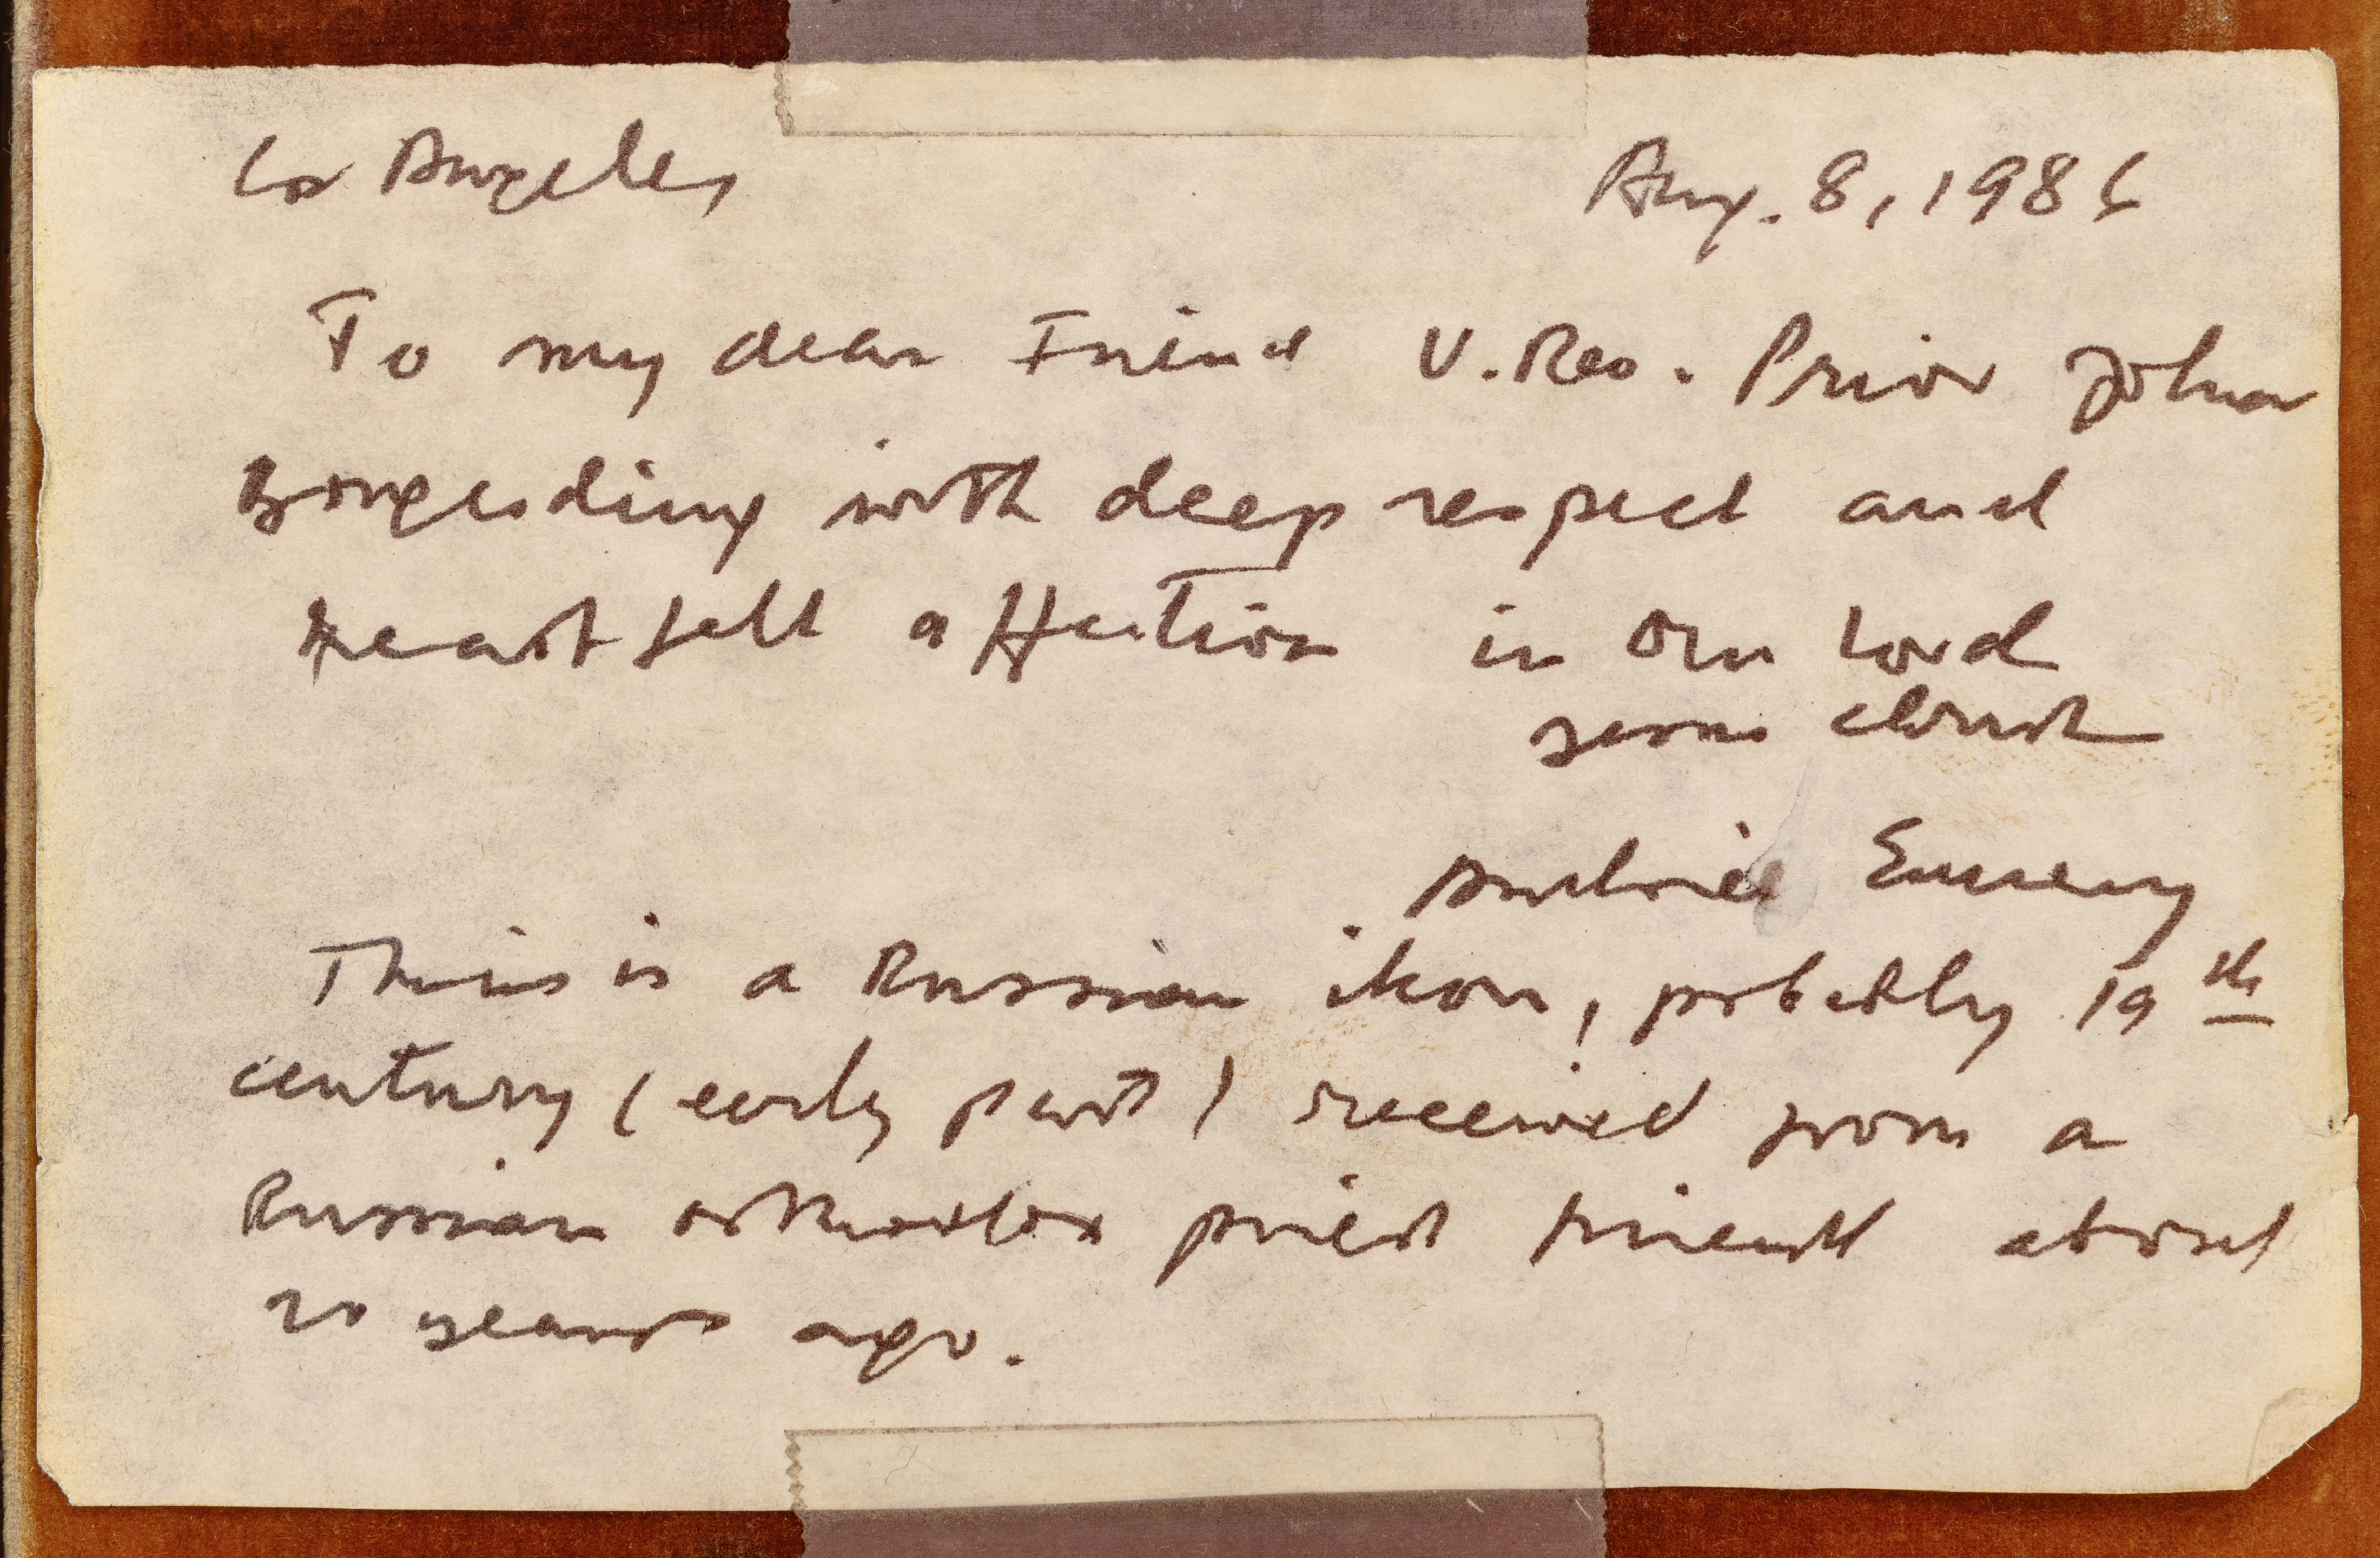 Los Angeles Aug. 8, 1986
To my dear Friend V. Rev. Prior John
Borgerding with deep respect and
heartfelt affection in Our Lord
Jesus Christ
Emery
This is a Russian ikon, probably 19th
century (early part) received from a
Russian orthodox priest friend about
20 years ago.